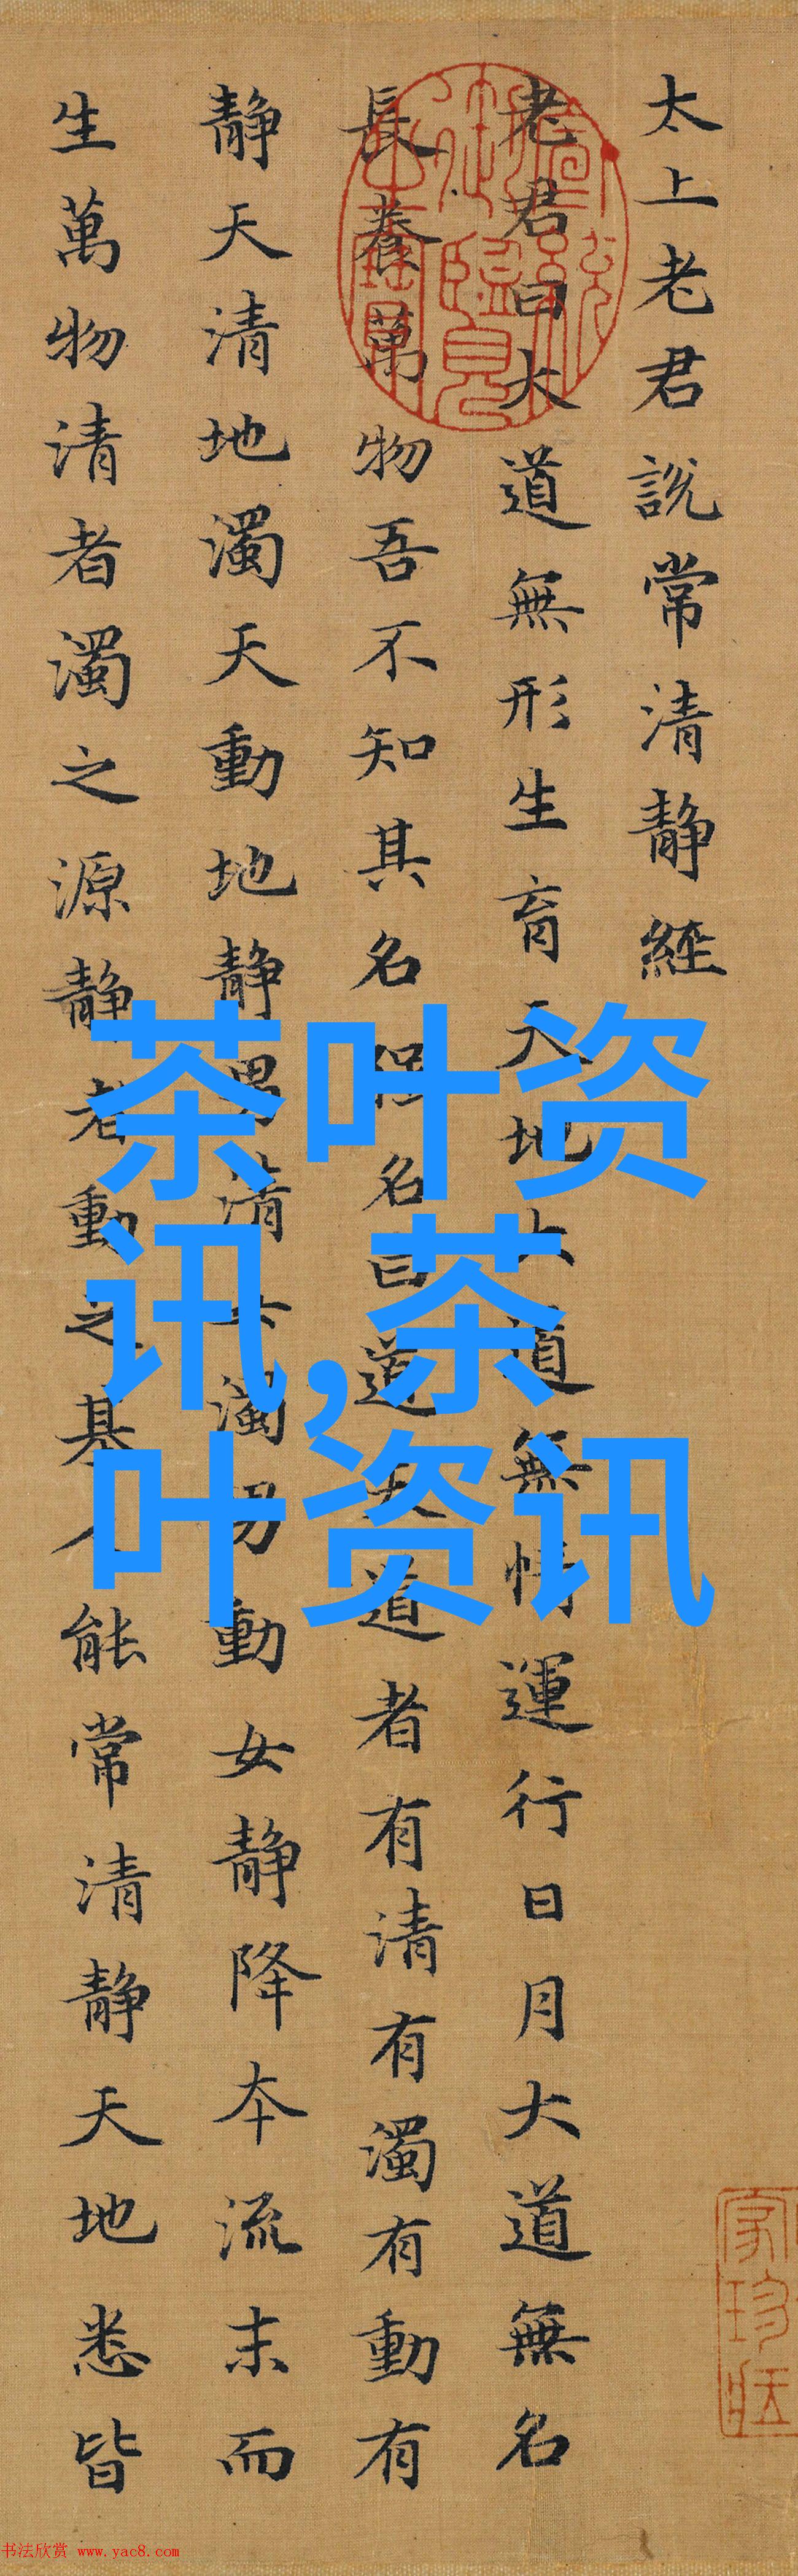 太上老君說常清静經
老君曰大道無形生育天地大道無情運行日月大道無名
長養萬物吾不知其名强名曰道夫道者有清有濁有動有
静天清地濁天動地静男清女濁男動女静降本流末而
生萬物清者濁之源静者動之基人能常清静天地悉皆
茶叶资
讯,茶
叶资讯
书法欣赏 www.yac8.com